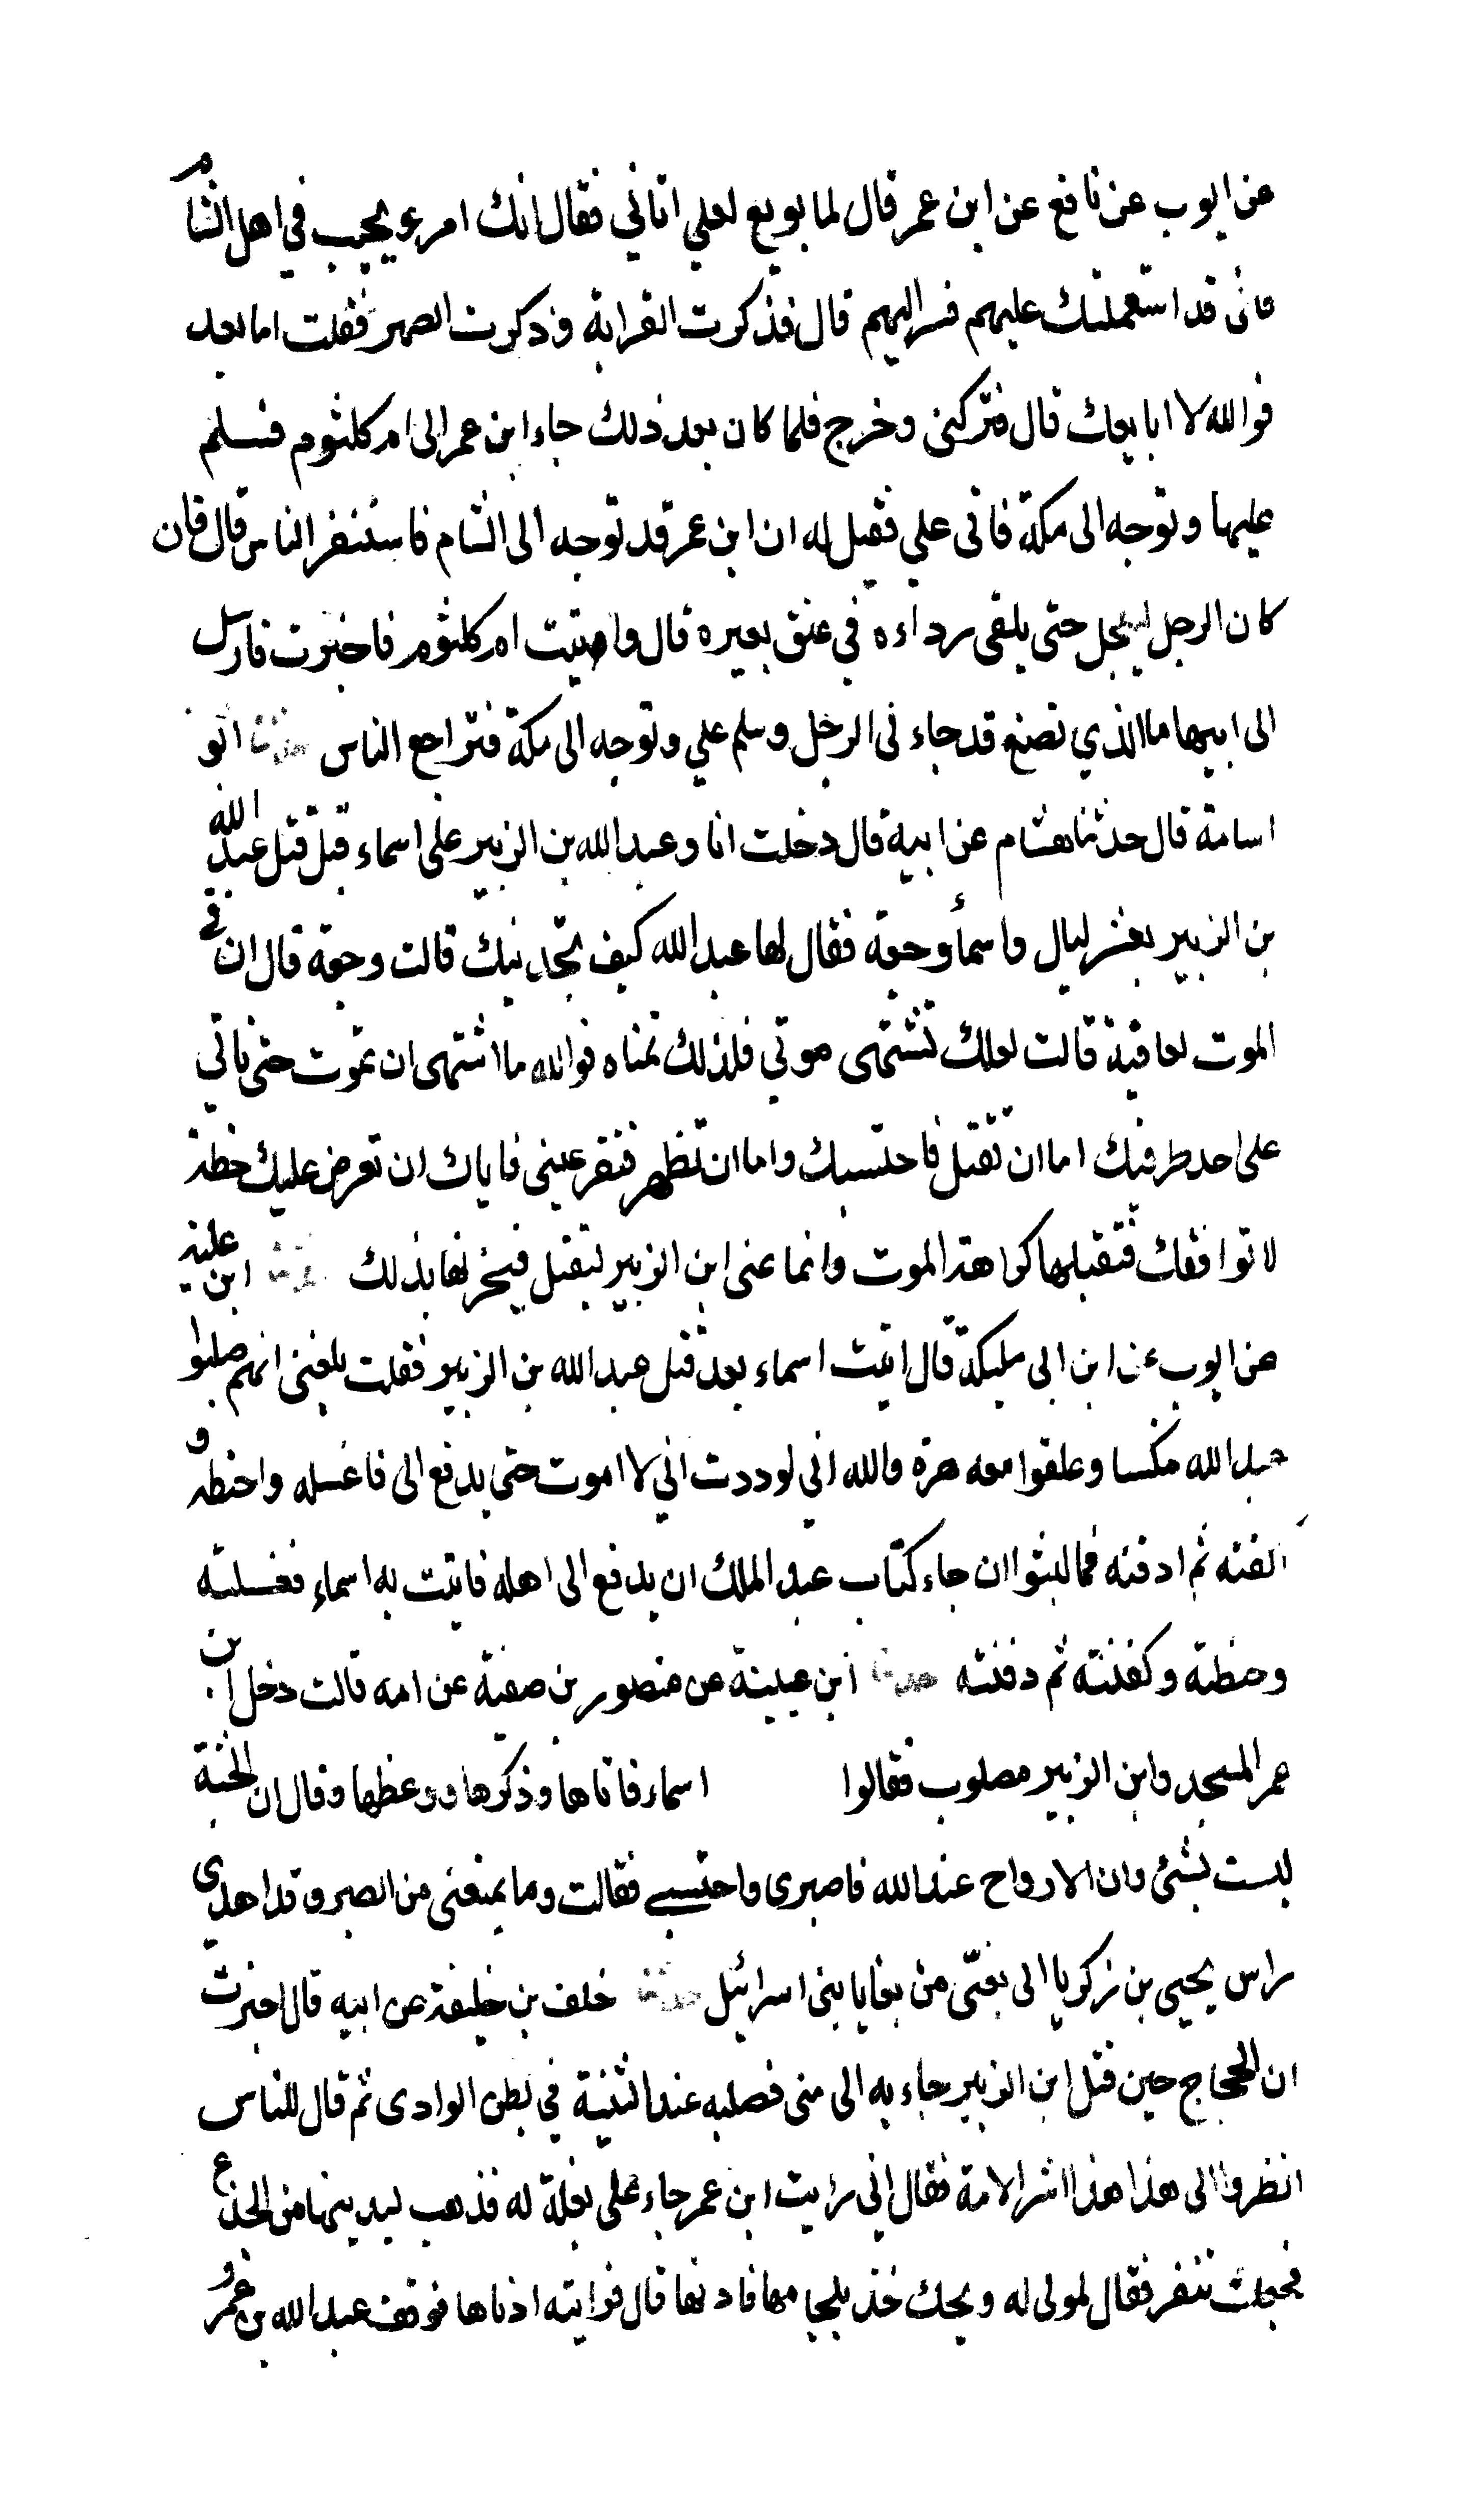 عن ايوب عن نافع عن ابن عمر قال لما بويع لعلي اتاني فقال انك امرء يحبب في اهل الشام
فانى قد استعملتك عليهم فسر اليهم قال فذكرت القرابة وذكرت الصهر فقلت اما بعد
فوالله لا ابايعك قال فتركنى وخرج فلما كان بعد ذلك جاء ابن عمر الى ام كلثوم فسلم
عليها وتوجه الى مكة فاتى علي فقيل له ان ابن عمر قد توجه الى الشام فاستنفر الناس قال فان
كان الرجل ليعجل حتى يلقى رداءه في عنق بعيره قال واتيت ام كلثوم فاخبرت فارسل
الى ابيها ما الذي تصنع قد جاء نى الرجل وسلم علي وتوجه الى مكة فتراجع الناس حدثنا ابو
اسامة قال حدثنا هشام عن ابيه قال دخلت انا وعبد الله بن الزبير على اسماء قبل قتل عبد الله
بن الزبير بعشر ليال واسمأ وجعة فقال لها عبد الله كيف تجدينك قالت وجعة قال ان في
الموت لعافية قالت لعلك تشتهى موتي فلذلك تمناه فوالله ما اشتهى ان تموت حتى ناتي
على احد طرفيك اما ان تقتل فاحتسبك واما ان تظهر فتقر عيني فاياك ان تعرض عليك خطة
لا توافقك فتقبلها كراهة الموت وانما عنى ابن الزبير ليقتل فيحزنها بذلك حدثنا ابن علية
عن ايوب عن ابن ابى مليكة قال اتيت اسماء بعد قتل عبد الله بن الزبير فقلت بلغنى انهم صلبوا
عبد الله منكسا وعلقوا معه هرة والله اني لوددت اني لا اموت حتى يدفع الى فاغسله واحنطه و
اكفنه ثم ادفنه فما لبثوا ان جاء كتاب عبد الملك ان يدفع الى اهله فاتيت به اسماء فغسلته
وحنطته وكفنته ثم دفنته حدثنا ابن عيينة عن منصور بن صفية عن امه قالت دخل ابن
عمر المسجد وابن الزبير مصلوب فقالوا اسماء فاتاها وذكرها ووعظها وقال ان الجثة
ليست بشئ وان الارواح عند الله فاصبرى واحتسبي فقالت وما يمنعنى من الصبر وقد اهدى
راس يحيى بن زكريا الى بغى من بغايا بنى اسرائيل حدثنا خلف بن خليفة عن ابيه قال اخبرت
ان الحجاج حين قتل ابن الزبير جاء به الى منى فصلبه عند الثنية في بطن الوادى ثم قال للناس
انظروا الى هذا هذا اشر الامة فقال اني رايت ابن عمر جاء على بغلة له فذهب ليدينها من الجذع
فجعلت تنفر فقال لمولى له ويحك خذ بلجامها فادنها قال فرايته ادناها فوقف عبد الله بن عمر